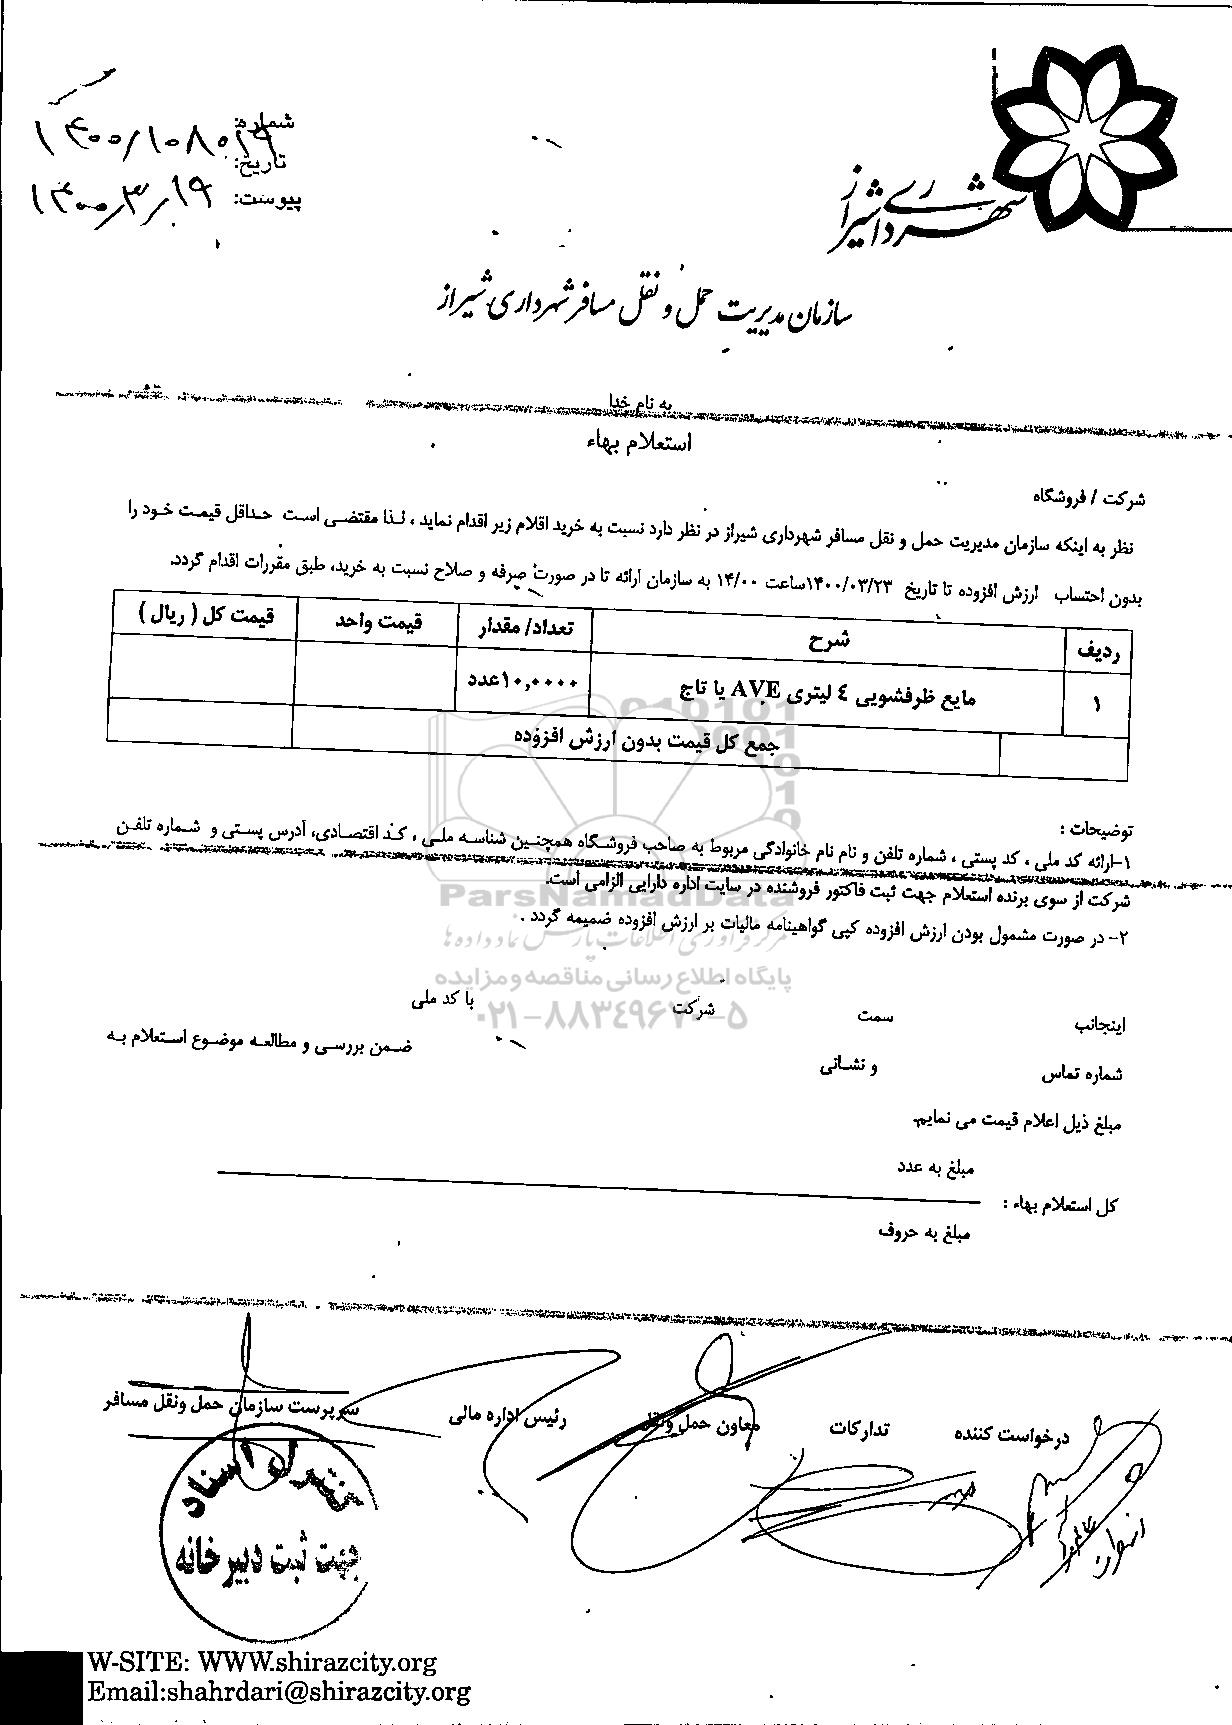 شهرداری شیراز
شماره: ۱۴۰۰/۱۰۸۰۱۹
تاریخ: ۱۴۰۰/۳/۱۹
پیوست:
سازمان مدیریت حمل و نقل مسافر شهرداری شیراز
به نام خدا
استعلام بهاء
شرکت / فروشگاه
نظر به اینکه سازمان مدیریت حمل و نقل مسافر شهرداری شیراز در نظر دارد نسبت به خرید اقلام زیر اقدام نماید ، لذا مقتضی است حداقل قیمت خود را
بدون احتساب ارزش افزوده تا تاریخ ۱۴۰۰/۰۳/۲۳ساعت ۱۴/۰۰ به سازمان ارائه تا در صورت صرفه و صلاح نسبت به خرید، طبق مقررات اقدام گردد.
ردیف شرح تعداد/ مقدار قیمت واحد قیمت کل ( ریال )
۱ مایع ظرفشویی ٤ لیتری AVE یا تاج ۱۰,۰۰۰۰عدد
جمع کل قیمت بدون ارزش افزوده
توضیحات :
۱-ارائه کد ملی ، کد پستی ، شماره تلفن و نام نام خانوادگی مربوط به صاحب فروشگاه همچنین شناسه ملی ، کد اقتصادی، آدرس پستی و شماره تلفن
شرکت از سوی برنده استعلام جهت ثبت فاکتور فروشنده در سایت اداره دارایی الزامی است.
۲- در صورت مشمول بودن ارزش افزوده کپی گواهینامه مالیات بر ارزش افزوده ضمیمه گردد .
ParsNamadData
مرکز فرآوری اطلاعات پارس نماد داده ها
پایگاه اطلاع رسانی مناقصه و مزایده
۰۲۱-۸۸۳٤۹٦۷۰-۵
اینجانب سمت شرکت با کد ملی
شماره تماس و نشانی ضمن بررسی و مطالعه موضوع استعلام به
مبلغ ذیل اعلام قیمت می نمایم.
مبلغ به عدد
کل استعلام بهاء :
مبلغ به حروف
درخواست کننده تدارکات معاون حمل ونقل رئیس اداره مالی سرپرست سازمان حمل ونقل مسافر
جهت ثبت دبیرخانه
W-SITE: WWW.shirazcity.org
Email:shahrdari@shirazcity.org